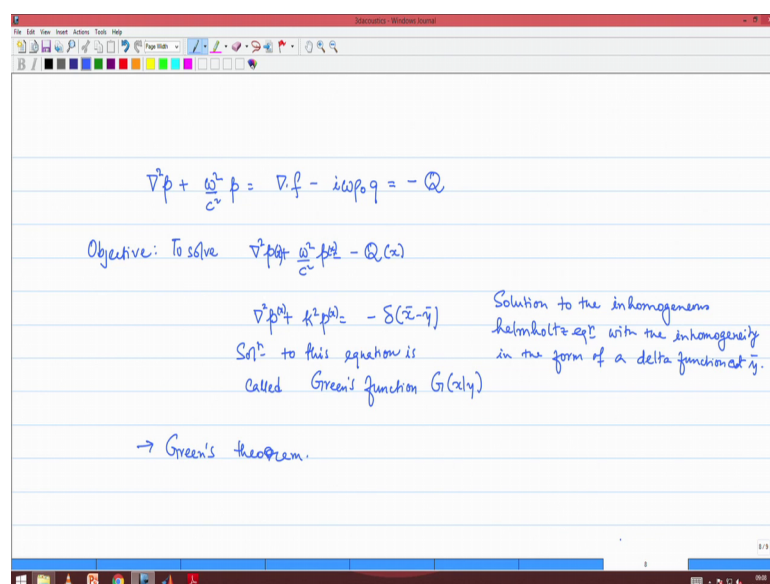 3dacoustics - Windows Journal
File Edit View Insert Actions Tools Help
Page Width
B I
∇²p + ω²/c² p = ∇.f - iωρ₀q = - Q
Objective: To solve ∇²p(x)+ ω²/c² p(x)= - Q(x)
∇²p(x)+ k²p(x)= - δ(x̄-ȳ)
Solⁿ to this equation is
called Green's function G(x|y)
Solution to the inhomogeneous
helmholtz eqⁿ with the inhomogeneity
in the form of a delta function at ȳ.
→ Green's theorem.
8/9
8